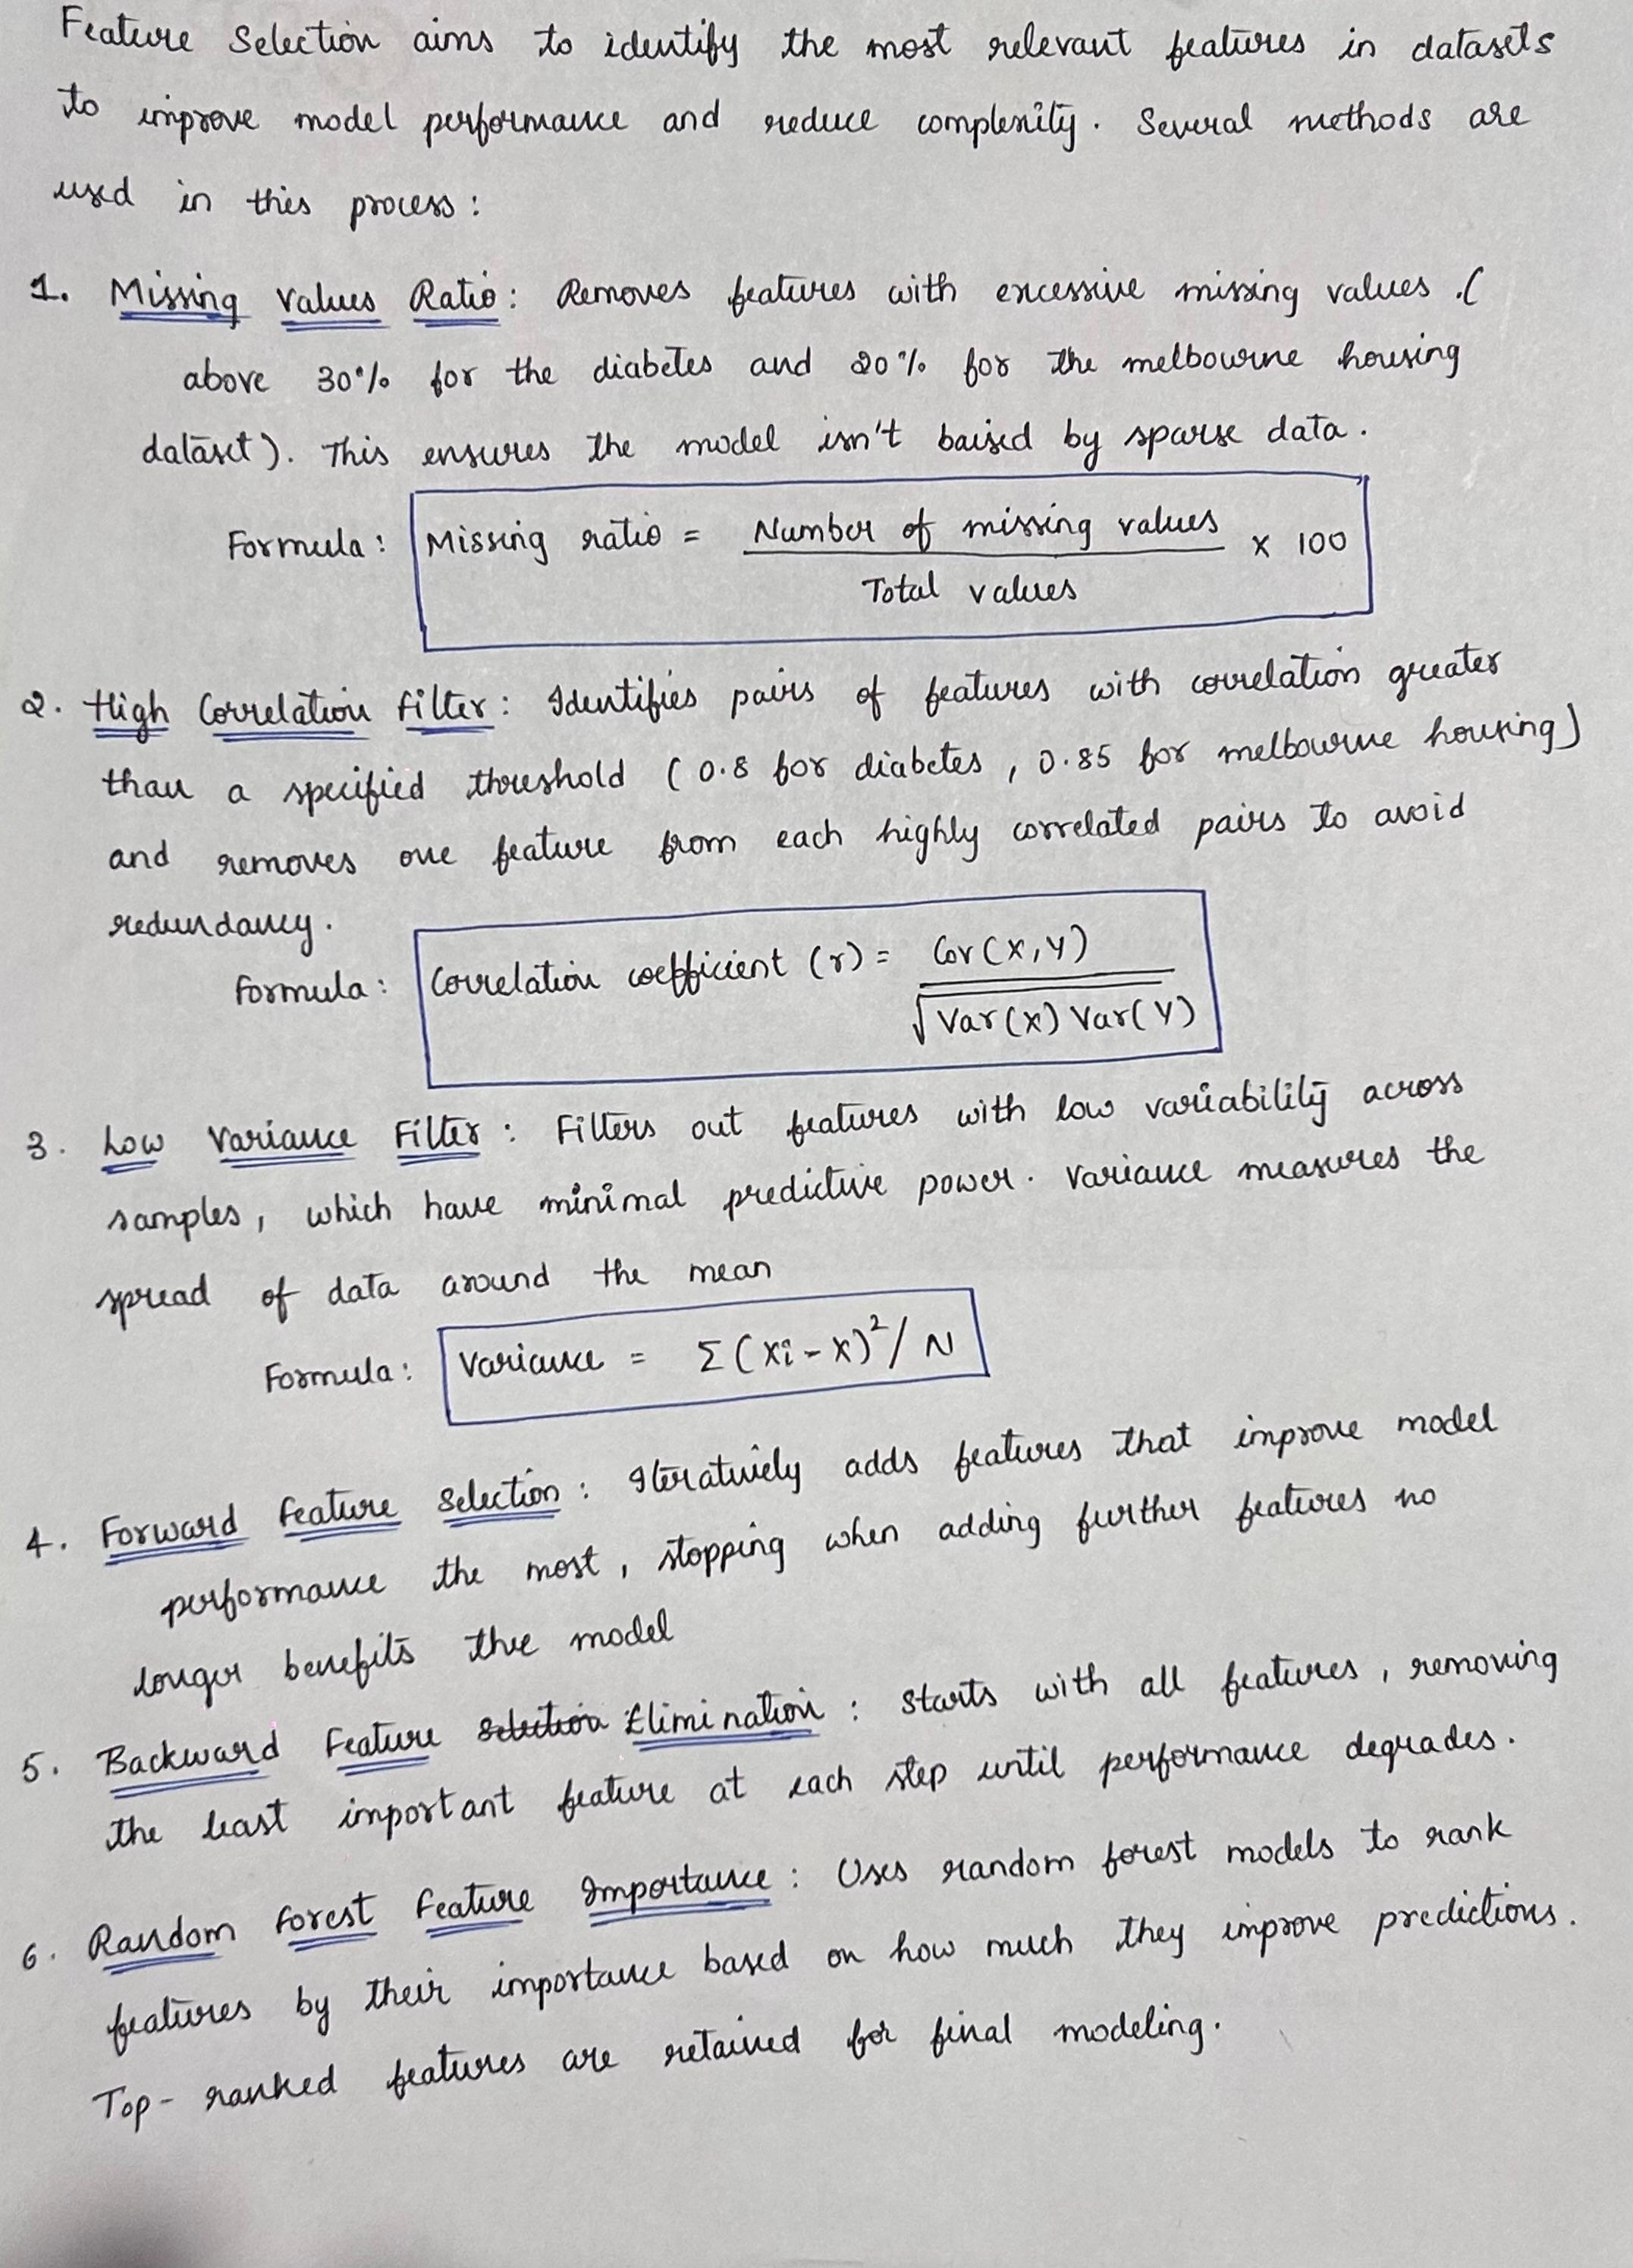 Feature Selection aims to identify the most relevant features in datasets
to improve model performance and reduce complexity. Several methods are
used in this process:
1. Missing Values Ratio: Removes features with excessive missing values.(
above 30% for the diabetes and 20% for the melbourne housing
dataset). This ensures the model isn't baised by sparse data.
Formula: Missing ratio = Number of missing values / Total values x 100
2. High Correlation Filter: Identifies pairs of features with correlation greater
than a specified threshold (0.8 for diabetes, 0.85 for melbourne housing)
and removes one feature from each highly correlated pairs to avoid
redundancy.
Formula: Correlation coefficient (r) = Cov(X,Y) / √Var(X) Var(Y)
3. Low Variance Filter: Filters out features with low variability across
samples, which have minimal predictive power. Variance measures the
spread of data around the mean
Formula: Variance = Σ(Xi-X)²/N
4. Forward Feature Selection: Iteratively adds features that improve model
performance the most, stopping when adding further features no
longer benefits the model
5. Backward Feature Selection Elimination: Starts with all features, removing
the least important feature at each step until performance degrades.
6. Random Forest Feature Importance: Uses random forest models to rank
features by their importance based on how much they improve predictions.
Top-ranked features are retained for final modeling.